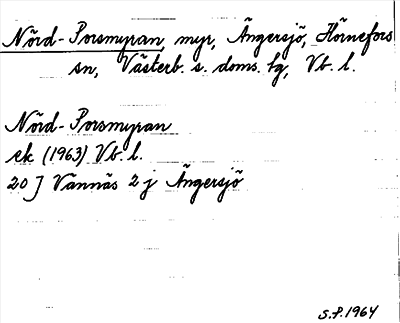 Nörd-Porsmyran, myr, Ängersjö, Hörnefors
sn, Västerb. s. doms. bg, Vb. l.
Nörd-Porsmyran
ek (1963) Vb. l.
20 J Vännäs 2 j Ängersjö
S.P. 1964